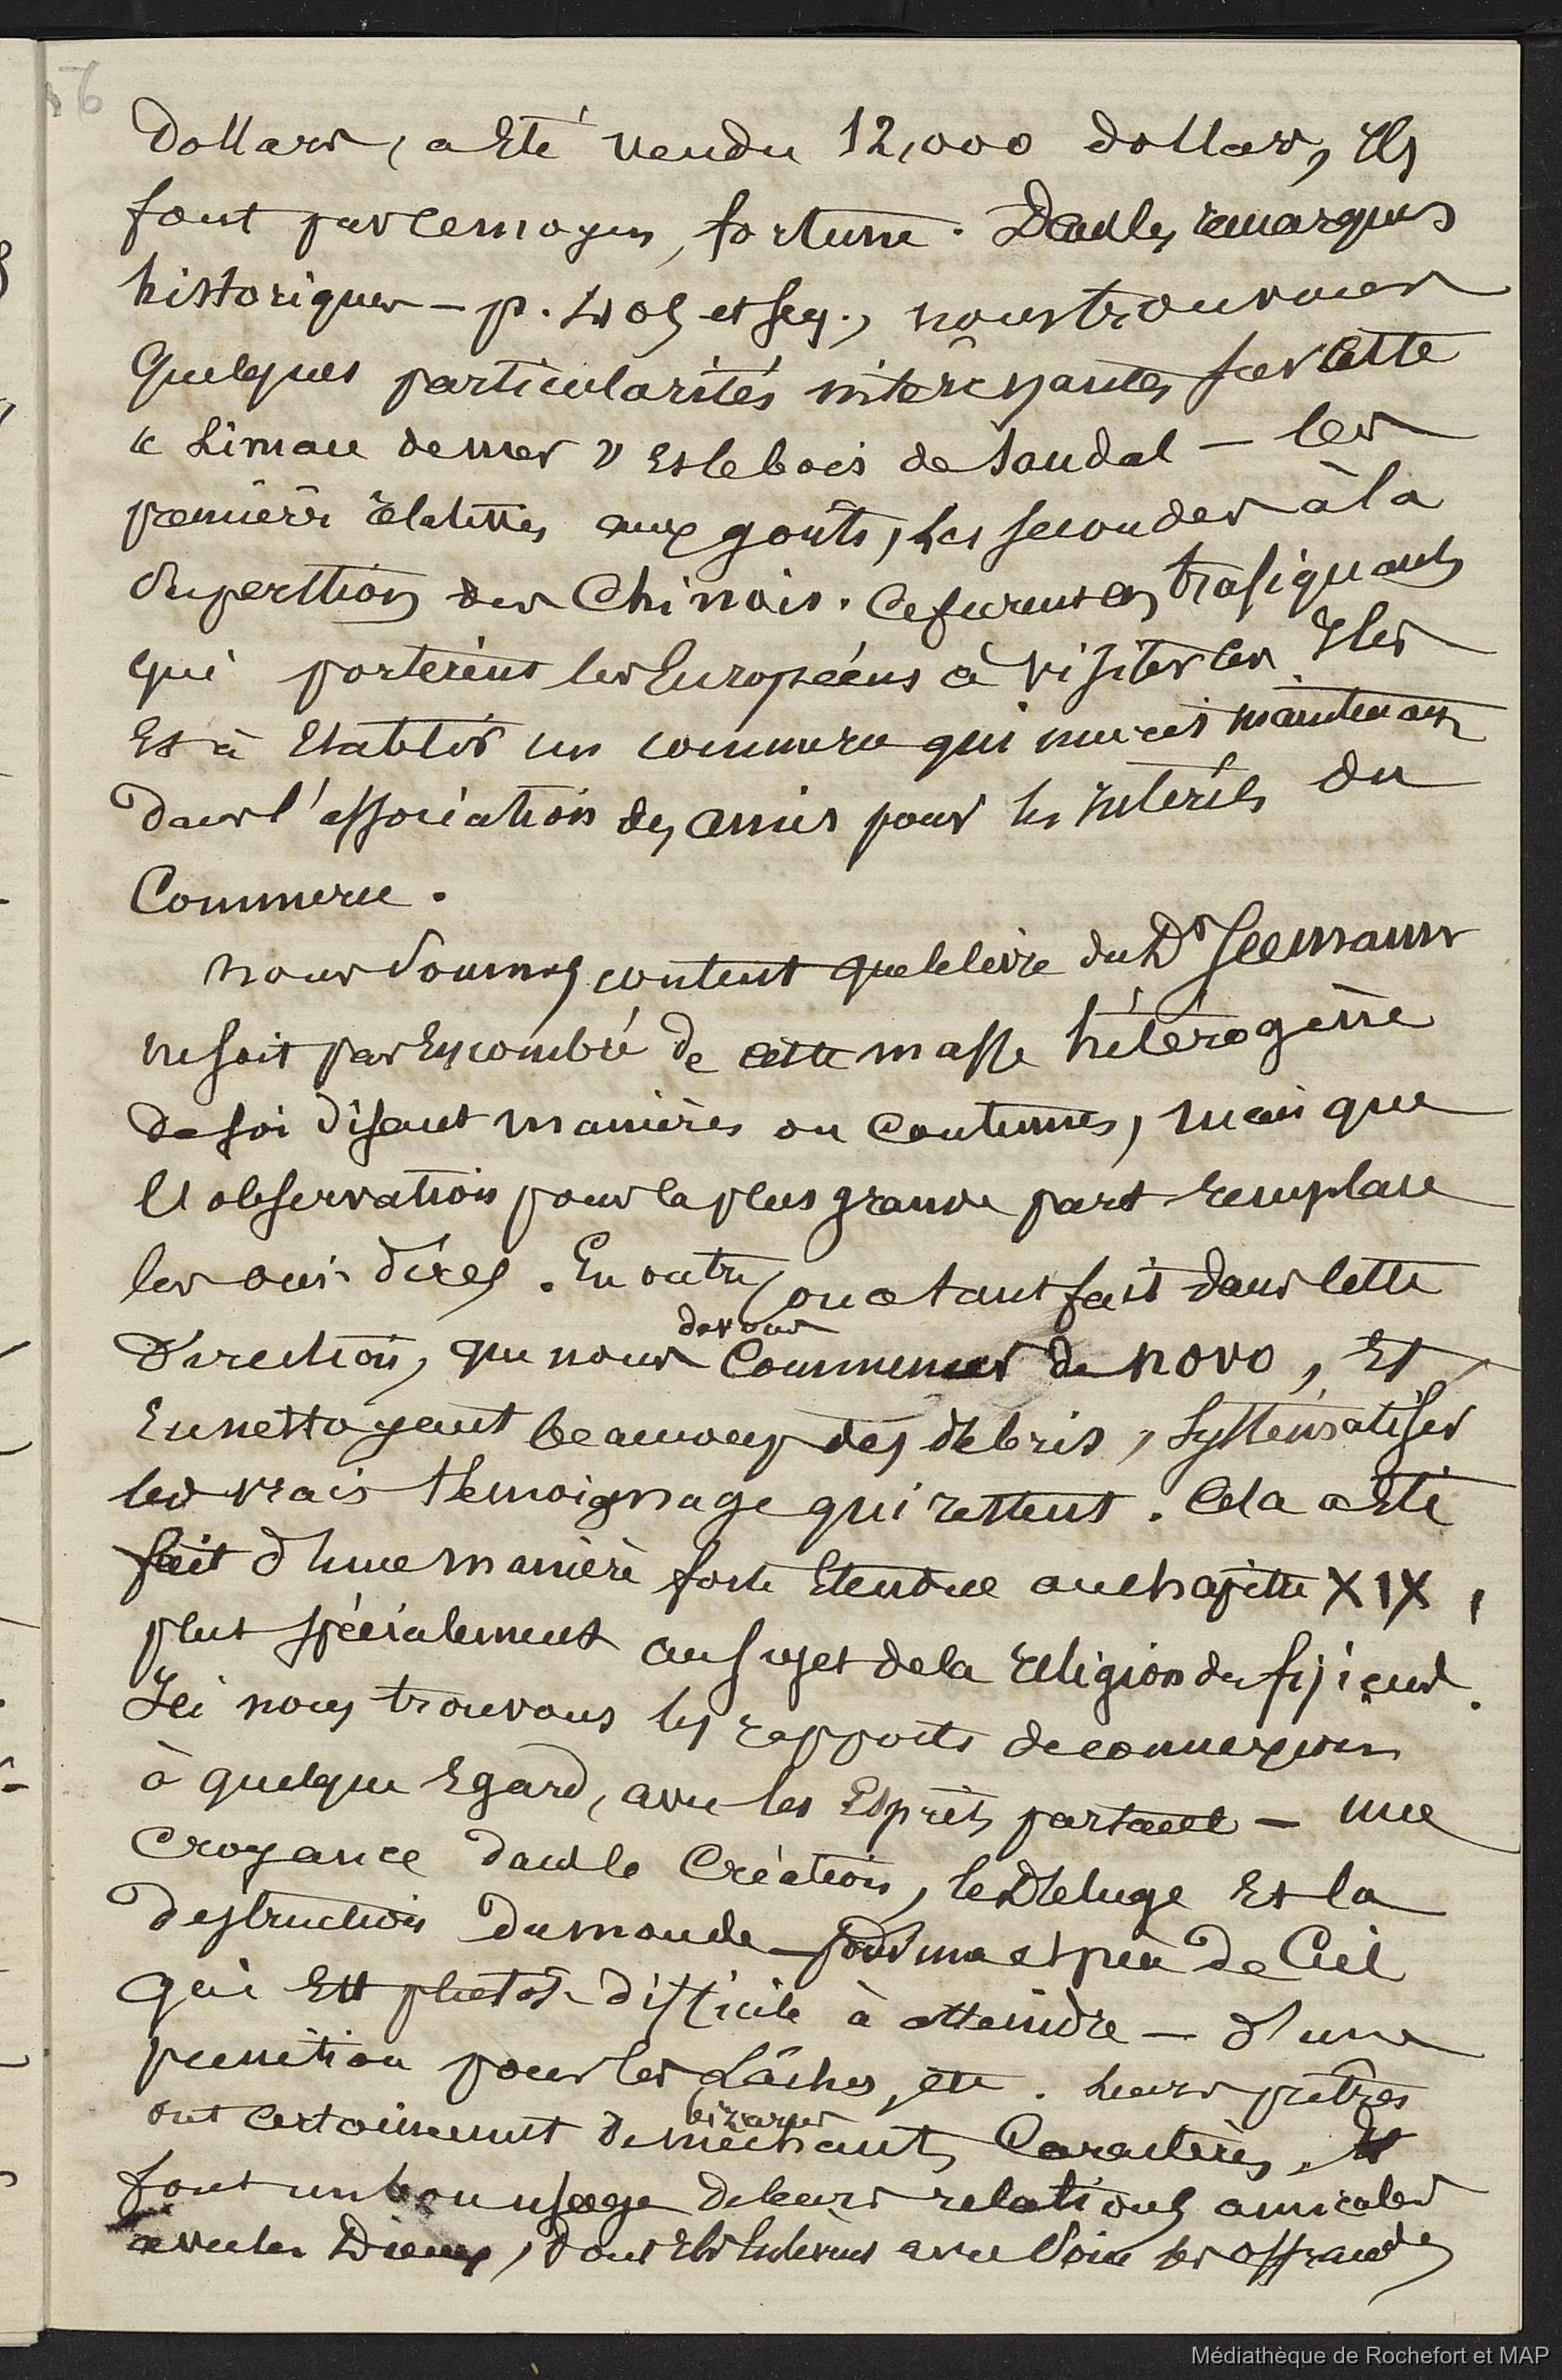 56
Dollars, a Eté vendu 12,000 dollars, Ils
font par ce moyen, fortune. Dans les remarques
historiques – p. et seq., nous trouvons
Quelques particularités intéressantes sur cette
« Limace de mer » Et le bois de Sandal – les
premières relatives aux goûts, les secondes à la
superstion des Chinois. Ce furent ces trafiquants
qui portèrent les Européens à visiter les Iles
Et à Etablir un commerce qui maintenant
dans l'association des amis pour les intérêts du
Commerce.
nous sommes content que le livre du Dr Seemann
ne soit pas Encombré de cette masse hétérogène
de soi disant manières ou coutumes, mais que
l'observation pour la plus grande part remplace
les ouï-dires. En outre, on a tant fait dans cette
Direction, que nous devons Commencer de novo, Et
En nettoyant beaucoup des débris, systématiser
les vrais témoignage qui restent. Cela a Eté
fait d'une manière forte Etendue au chapitre XIX,
plus spécialement au sujet de la religion des fijiens.
Ici nous trouvons les rapports de connexion
à quelque Egard, avec les Esprits partout – une
Croyance dans la Création, le Déluge Et la
destruction du monde – pour une espèce de Ciel
qui Est plutôt difficile à atteindre – d'une
punition pour les Lâches, etc. Leurs prêtres
ont certainement de méchants bizarres Caractères, Et
font un bon usage de leurs relations amicales
avec les Dieux, dont Ils Enlèvent avec soin les offrandes
Médiathèque de Rochefort et MAP